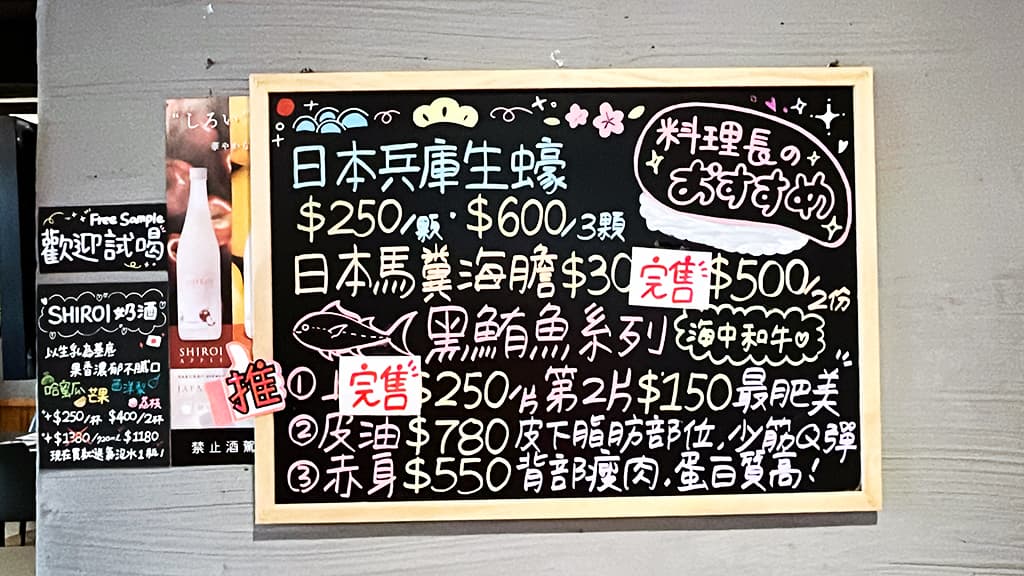 料理長の
おすすめ
日本兵庫生蠔
$250/顆·$600/3顆
日本馬糞海膽$30 完售 $500/2份
黑鮪魚系列 海中和牛
推 ① 完售 $250/片第2片$150最肥美
②皮油$780皮下脂肪部位,少筋Q彈
③赤身$550背部瘦肉,蛋白質高!
Free Sample
歡迎試喝
SHIROI奶酒
以生乳為基底
果香濃郁不膩口
哈蜜瓜 西洋梨
芒果 荔枝
$250/杯 $400/2杯
$1380/720ml $1180
"しろい
華やかな
SHIROI
APPLE
禁止酒駕